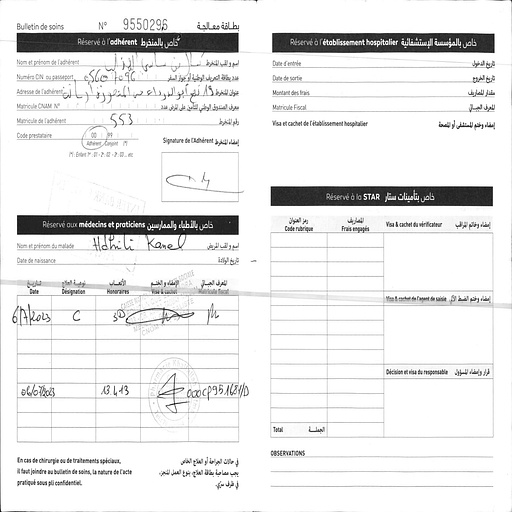 Bulletin de soins N° 9550296 بطاقة معالجة
Réservé à l'adhérent خاص بالمنخرط
Nom et prénom de l'adhérent اسم و لقب المنخرط
Numéro CIN ou passeport عدد بطاقة التعريف الوطنية أو جواز السفر
Adresse de l'adhérent عنوان المنخرط
Matricule CNAM N°
Matricule de l'adhérent 553 رقم المنخرط
Code prestataire 00 99
Adhérent Conjoint (*)
(*) : Enfant 1er : 01 - 2e : 02 - 3e : 03 ... etc
Signature de l'Adhérent إمضاء المنخرط
Réservé aux médecins et praticiens خاص بالأطباء والممارسين
Nom et prénom du malade Kamel اسم و لقب المريض
Date de naissance تاريخ الولادة
التاريخ نوعية العلاج الأتعاب الإمضاء و الختم المعرف الجبائي
Date Désignation Honoraires Visa & cachet Matricule fiscal
6/7/2023 C
06/07/2023 13.413
En cas de chirurgie ou de traitements spéciaux,
il faut joindre au bulletin de soins, la nature de l'acte
pratiqué sous pli confidentiel.
في حالات الجراحة أو العلاج الخاص
يجب مصاحبة بطاقة العلاج، بنوع العمل المنجز،
في ظرف سري.
Réservé à l'établissement hospitalier خاص بالمؤسسة الإستشفائية
Date d'entrée تاريخ الدخول
Date de sortie تاريخ الخروج
Montant des frais مقدار المصاريف
Matricule Fiscal المعرف الجبائي
Visa et cachet de l'établissement hospitalier إمضاء وختم المستشفى أو المصحة
Réservé à la STAR خاص بتأمينات ستار
رمز العنوان المصاريف
Code rubrique Frais engagés
Visa & cachet du vérificateur إمضاء وخاتم المراقب
Visa & cachet de l'agent de saisie
Décision et visa du responsable قرار وإمضاء المسؤول
Total الجملة
OBSERVATIONS